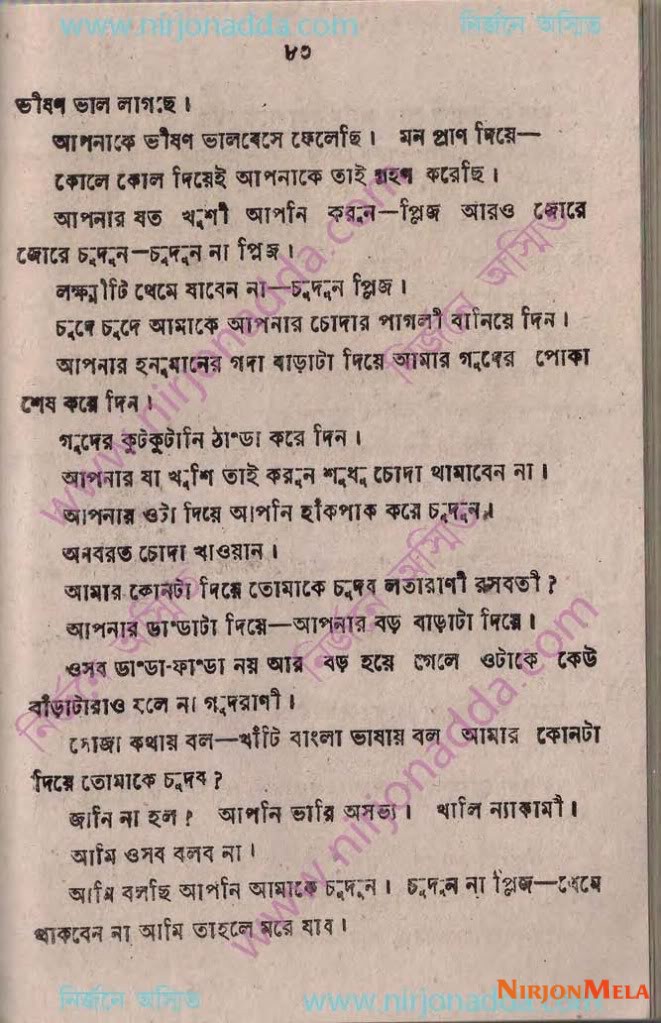 www.nirjonadda.com নির্জনে অস্মিত
৮৩
ভীষণ ভাল লাগছে।
আপনাকে ভীষণ ভালবেসে ফেলেছি। মন প্রাণ দিয়ে—
কোলে কোল দিয়েই আপনাকে তাই গ্রহণ করেছি।
আপনার যত খুশী আপনি করুন—প্লিজ আরও জোরে
জোরে চুদুন—চুদুন না প্লিজ।
লক্ষ্মীটি থেমে যাবেন না—চুদুন প্লিজ।
চুদে চুদে আমাকে আপনার চোদার পাগলী বানিয়ে দিন।
আপনার হনুমানের গদা বাড়াটা দিয়ে আমার গুদের পোকা
শেষ করে দিন।
গুদের কুটকুটানি ঠাণ্ডা করে দিন।
আপনার যা খুশি তাই করুন শুধু চোদা থামাবেন না।
আপনার ওটা দিয়ে আপনি হাঁকপাক করে চুদুন।
অনবরত চোদা খাওয়ান।
আমার কোনটা দিয়ে তোমাকে চুদব লতারাণী রসবতী?
আপনার ডাণ্ডাটা দিয়ে—আপনার বড় বাড়াটা দিয়ে।
ওসব ডাণ্ডা-ফাণ্ডা নয় আর বড় হয়ে গেলে ওটাকে কেউ
বাঁড়াটারাও বলে না গুদরাণী।
সোজা কথায় বল—খাঁটি বাংলা ভাষায় বল আমার কোনটা
দিয়ে তোমাকে চুদব?
জানি না হল? আপনি ভারি অসভ্য। খালি ন্যাকামী।
আমি ওসব বলব না।
আমি বলছি আপনি আমাকে চুদুন। চুদুন না প্লিজ—থেমে
থাকবেন না আমি তাহলে মরে যাব।
নির্জনে অস্মিত www.nirjonadda.com
NIRJONMELA